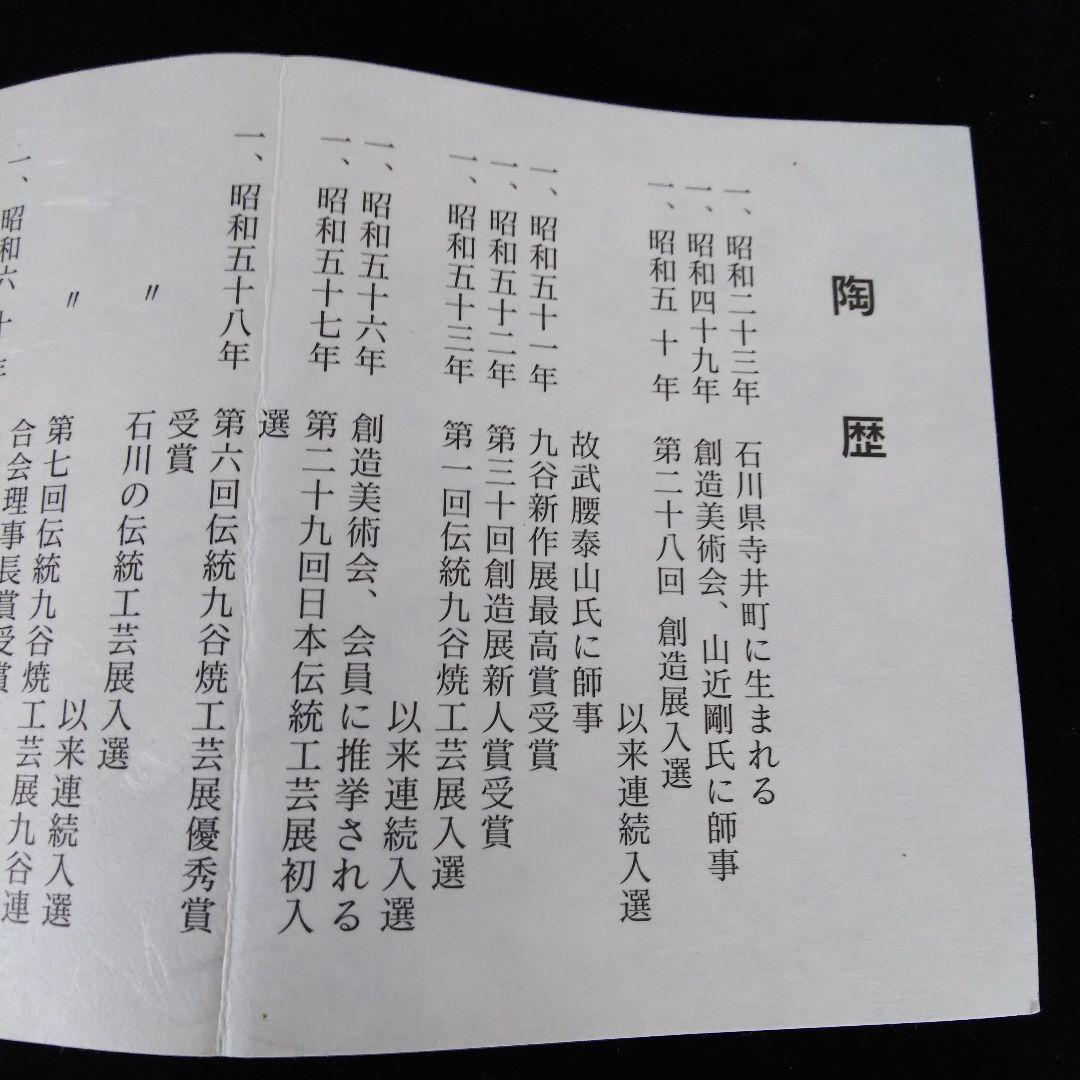 陶歴
一、昭和二十三年 石川県寺井町に生まれる
一、昭和四十九年 創造美術会、山近剛氏に師事
一、昭和五十年 第二十八回 創造展入選
以来連続入選
故武腰泰山氏に師事
一、昭和五十一年 九谷新作展最高賞受賞
一、昭和五十二年 第三十回創造展新人賞受賞
一、昭和五十三年 第一回伝統九谷焼工芸展入選
以来連続入選
一、昭和五十六年 創造美術会、会員に推挙される
一、昭和五十七年 第二十九回日本伝統工芸展初入
選
一、昭和五十八年 第六回伝統九谷焼工芸展優秀賞
受賞
〃 石川の伝統工芸展入選
以来連続入選
〃 第七回伝統九谷焼工芸展九谷連
合会理事長賞受賞
一、昭和六十年